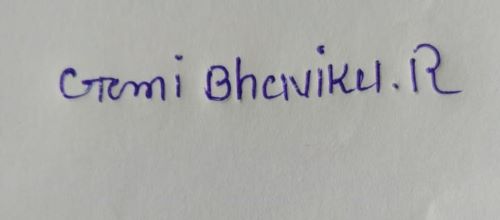 Gami Bhavika.R